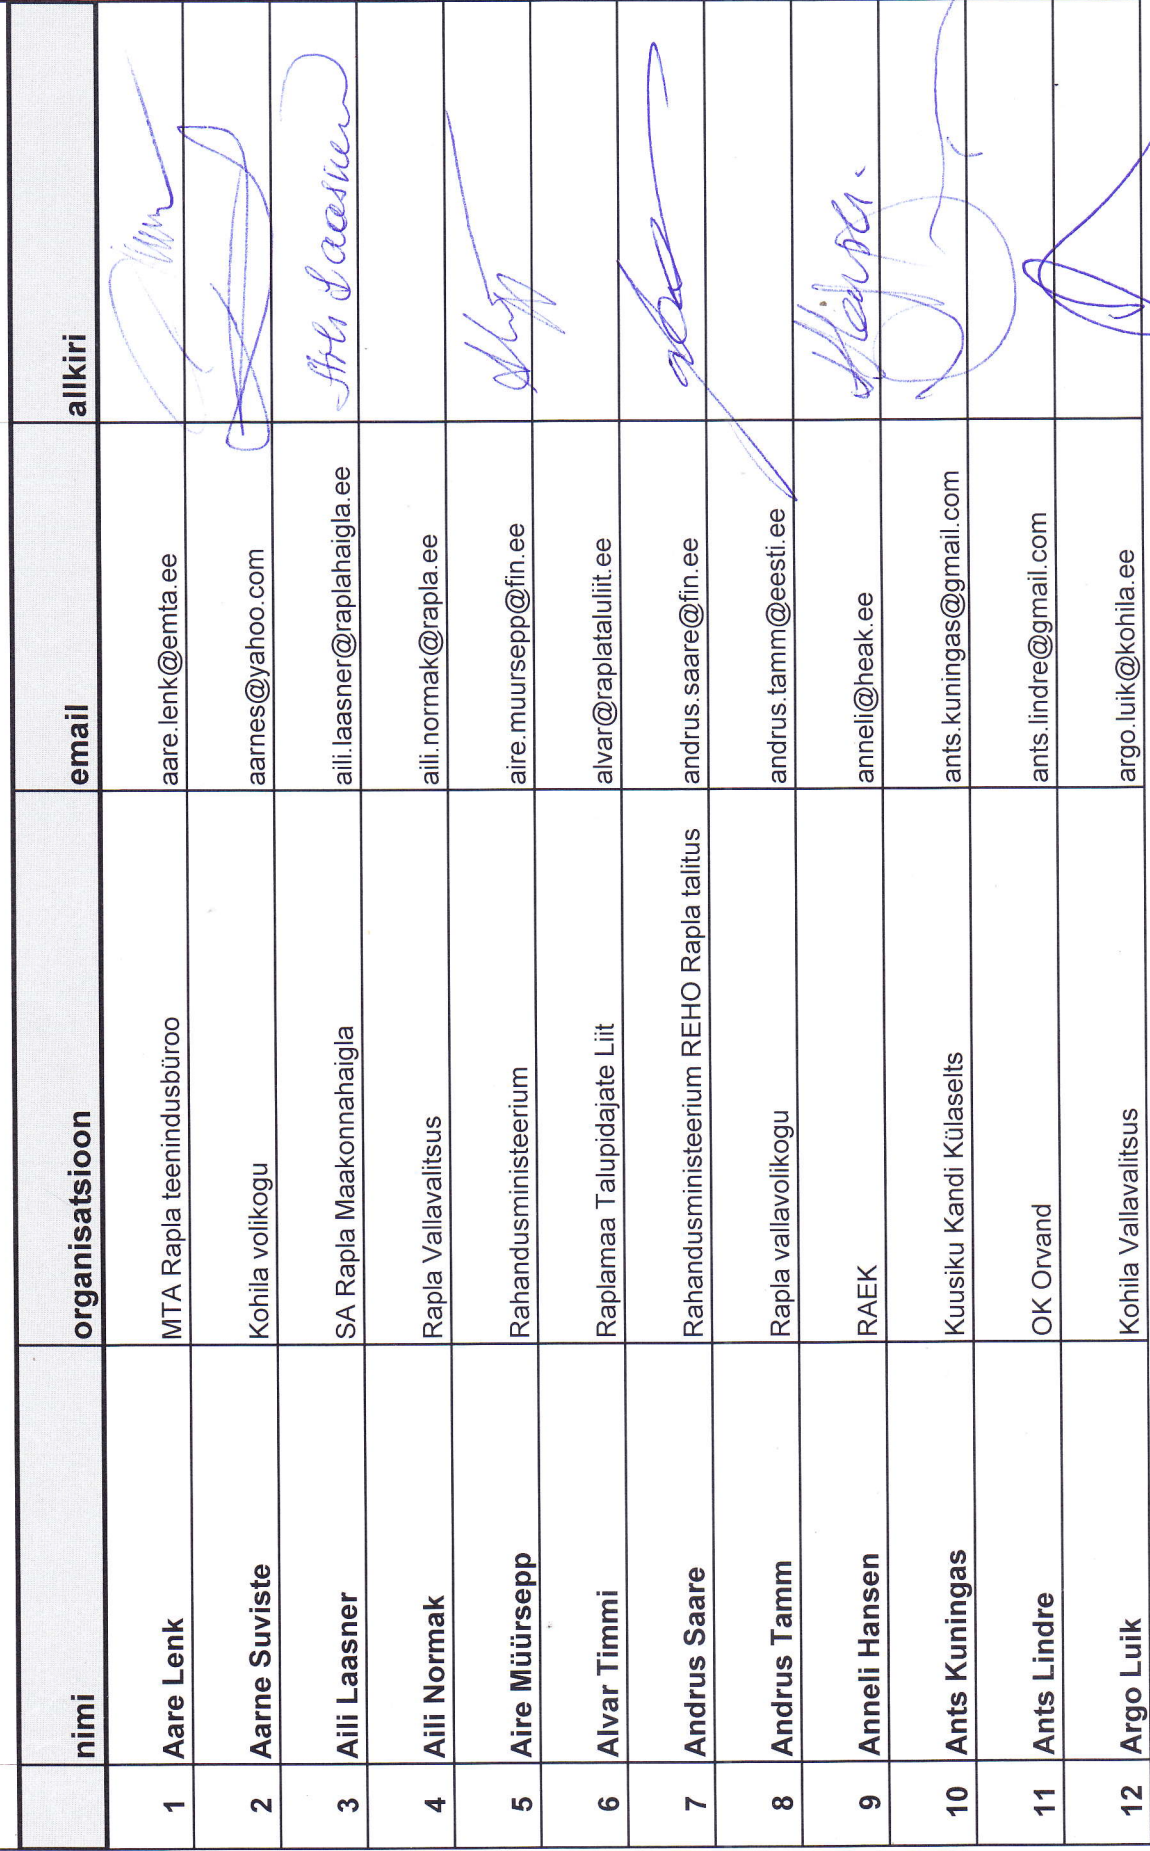 nimi organisatsioon email allkiri
1 Aare Lenk MTA Rapla teenindusbüroo aare.lenk@emta.ee
2 Aarne Suviste Kohila volikogu aarnes@yahoo.com
3 Aili Laasner SA Rapla Maakonnahaigla aili.laasner@raplahaigla.ee Aili Laasner
4 Aili Normak Rapla Vallavalitsus aili.normak@rapla.ee
5 Aire Müürsepp Rahandusministeerium aire.muursepp@fin.ee
6 Alvar Timmi Raplamaa Talupidajate Liit alvar@raplataluliit.ee
7 Andrus Saare Rahandusministeerium REHO Rapla talitus andrus.saare@fin.ee
8 Andrus Tamm Rapla vallavolikogu andrus.tamm@eesti.ee
9 Anneli Hansen RAEK anneli@heak.ee
10 Ants Kuningas Kuusiku Kandi Külaselts ants.kuningas@gmail.com
11 Ants Lindre OK Orvand ants.lindre@gmail.com
12 Argo Luik Kohila Vallavalitsus argo.luik@kohila.ee